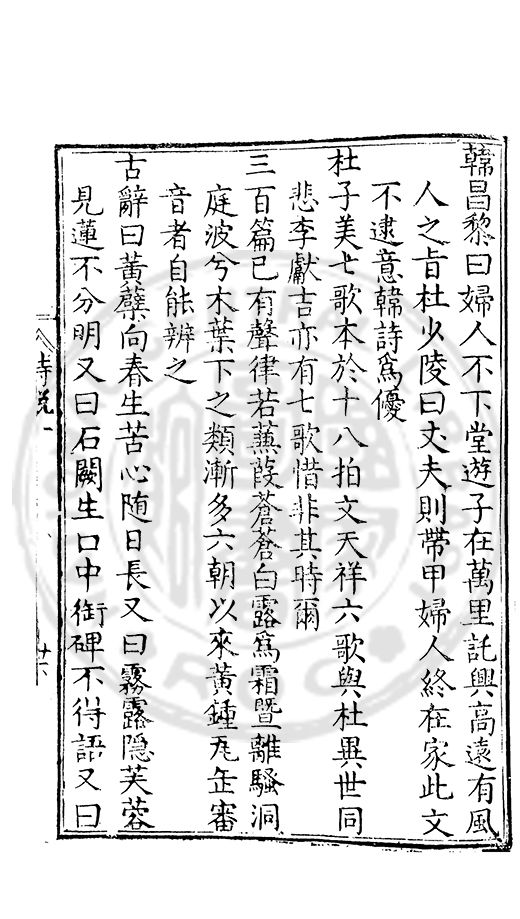 韓昌黎曰婦人不下堂遊子在萬里託興高遠有風
人之旨杜少陵曰丈夫則帶甲婦人終在家此文
不逮意韓詩爲優
杜子美七歌本於十八拍文天祥六歌與杜異世同
悲李獻吉亦有七歌惜非其時爾
三百篇已有聲律若蒹葭蒼蒼白露爲霜暨離騷洞
庭波兮木葉下之類漸多六朝以來黃鍾瓦缶審
音者自能辨之
古辭曰黃蘗向春生苦心随日長又曰霧露隱芙蓉
見蓮不分明又曰石闕生口中銜碑不得語又曰
詩說一